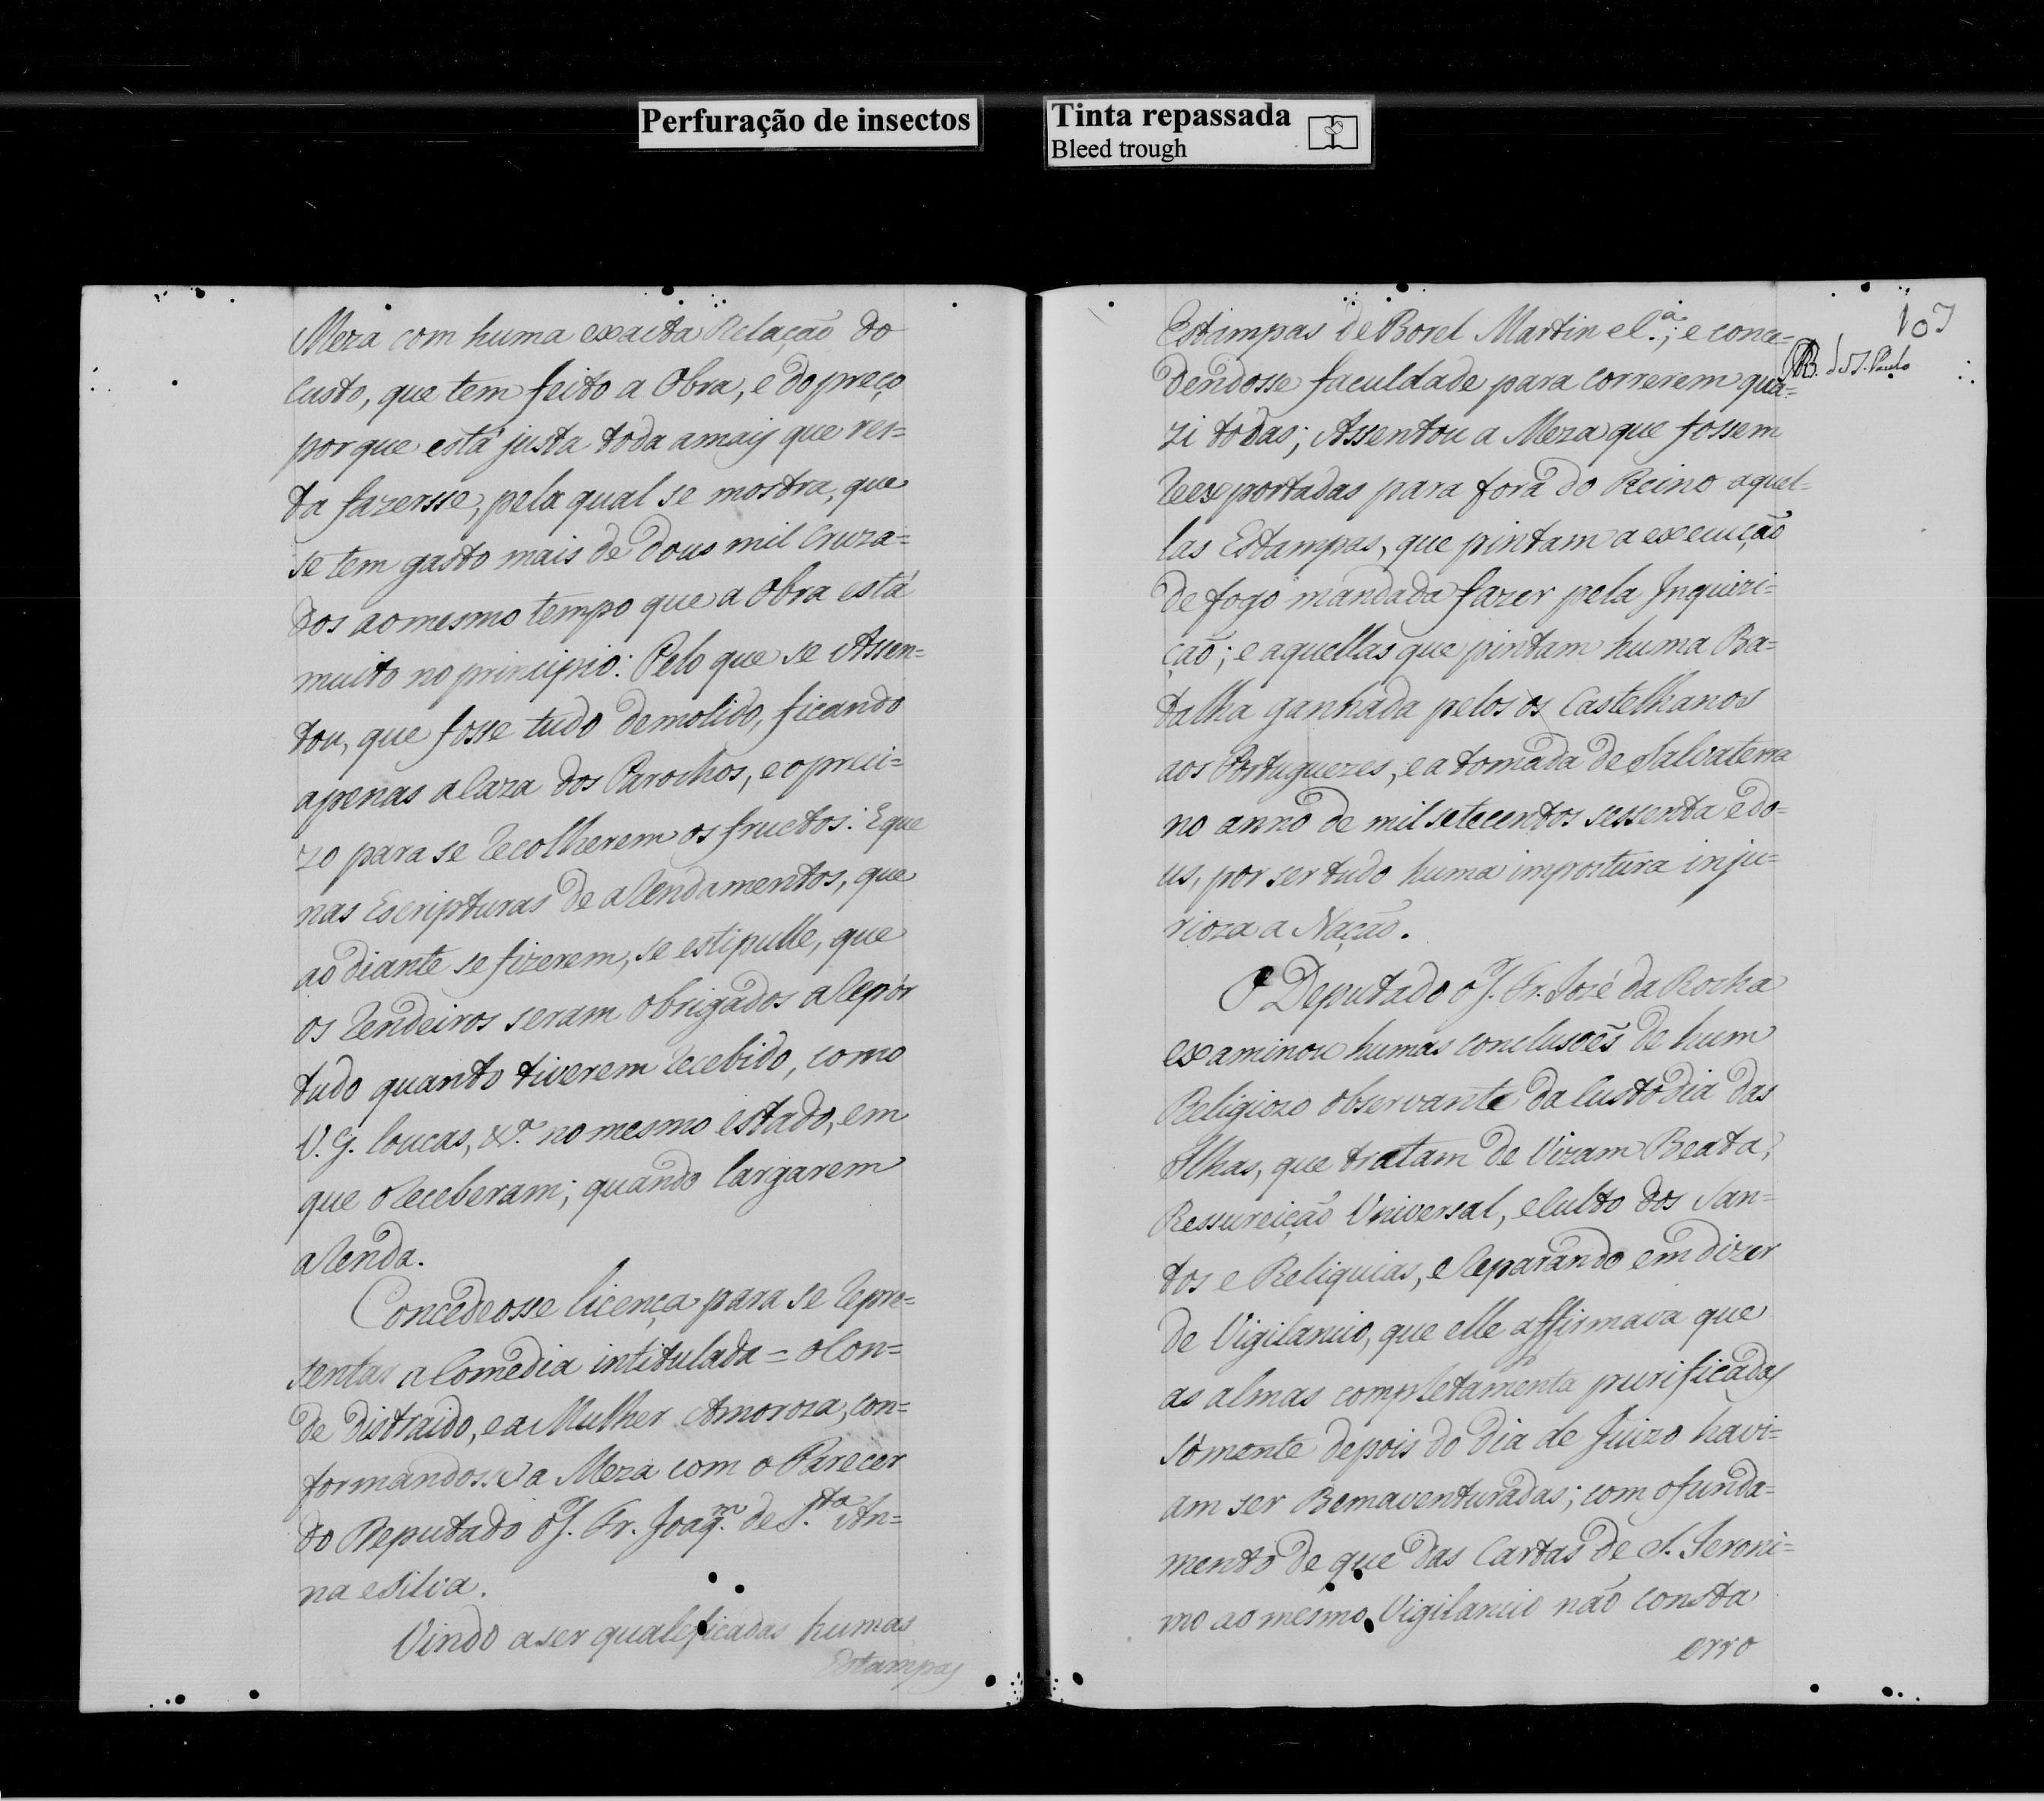 Perfuração de insectos
Tinta repassada
Bleed trough
Meza com huma exacta Relação do
Custo, que tem feito a Obra, e do preço
porque está justa toda a mais que res=
ta fazersse, pela qual se mostra, que
se tem gasto mais de dous mil Cruza=
dos ao mesmo tempo que a Obra está
muito no principio: Pelo que se Assen=
tou, que fosse tudo demolido, ficando
apenas a Caza dos Parochos, e o preci=
zo para se recolherem os fructos: E que
nas Escripturas de arrendamentos, que
ao diante se fizerem, se estipulle, que
os rendeiros seram obrigados a repór
tudo quanto tiverem recebido, como
V. G. Loucas, &.ª no mesmo estado, em
que o receberam; quando largarem
a renda.
Concedeosse licença para se repre=
sentar a Comedia intitulada = o Con=
de distraido, e a Mulher Amoroza, con=
formandosse a Meza com o Parecer
do Deputado o S. Fr. Joaq.m de S.ta An=
na e Silva.
Vindo a ser qualeficadas humas
Estampas
107
Estampas de Borel Martin e C.ª; e conce=
dendosse faculdade para correrem qua=
zi todas; Assentou a Meza que fossem
reexportadas para fora do Reino aquel=
las Estampas, que pintam a execução
de fogo mandada fazer pela Inquizi=
ção; e aquellas que pintam huma Ba=
talha ganhada pelos os Castelhanos
aos Portuguezes, e a tomada de Salvaterra
no anno de mil setecentos sessenta e do=
us, por ser tudo huma impostura inju=
rioza a Nação.
O Deputado o S. Fr. José da Rocha
examinou humas conclusoẽs de hum
Religiozo observante da Custodia das
Ilhas, que tratam de Vizam Beata,
Ressureição Universal, e Culto dos San=
tos e Reliquias, e reparando em dizer
de Vigilancio, que elle affirmava que
as almas completamenta purificadas
sómente depois do dia de Juizo havi=
am ser Bemaventuradas; com o funda=
mento de que das Cartas de S. Jeroni=
mo ao mesmo Vigilancio não consta
erro